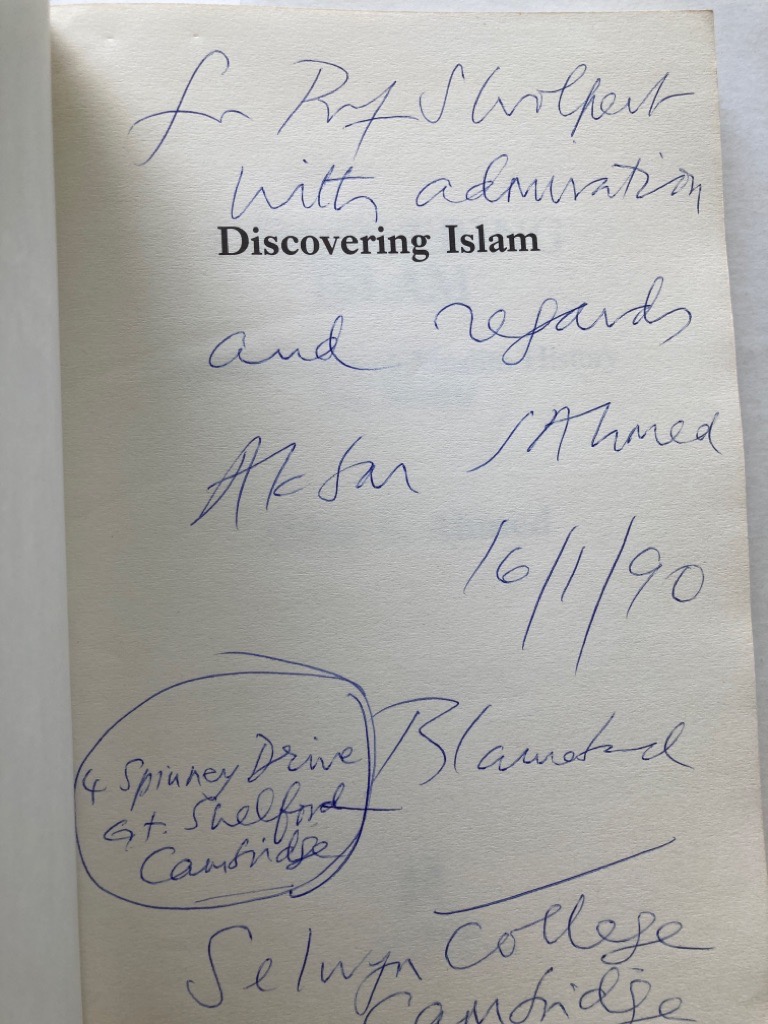 for Prof S Wolpert
with admiration
Discovering Islam
and regards
Akbar S Ahmed
16/1/90
4 Spinney Drive
Gt. Shelford
Cambridge
Selwyn College
Cambridge